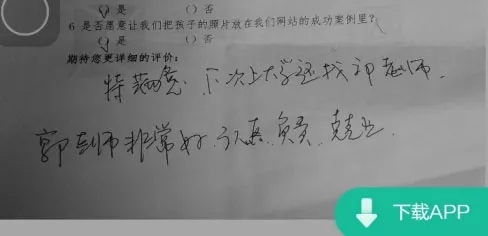 (√)是 ( )否
6 是否愿意让我们把孩子的照片放在我们网站的成功案例里？
(√)是 ( )否
期待您更详细的评价：
特别满意，下次上大学还找郭老师。
郭老师非常好，认真、负责、
下载APP